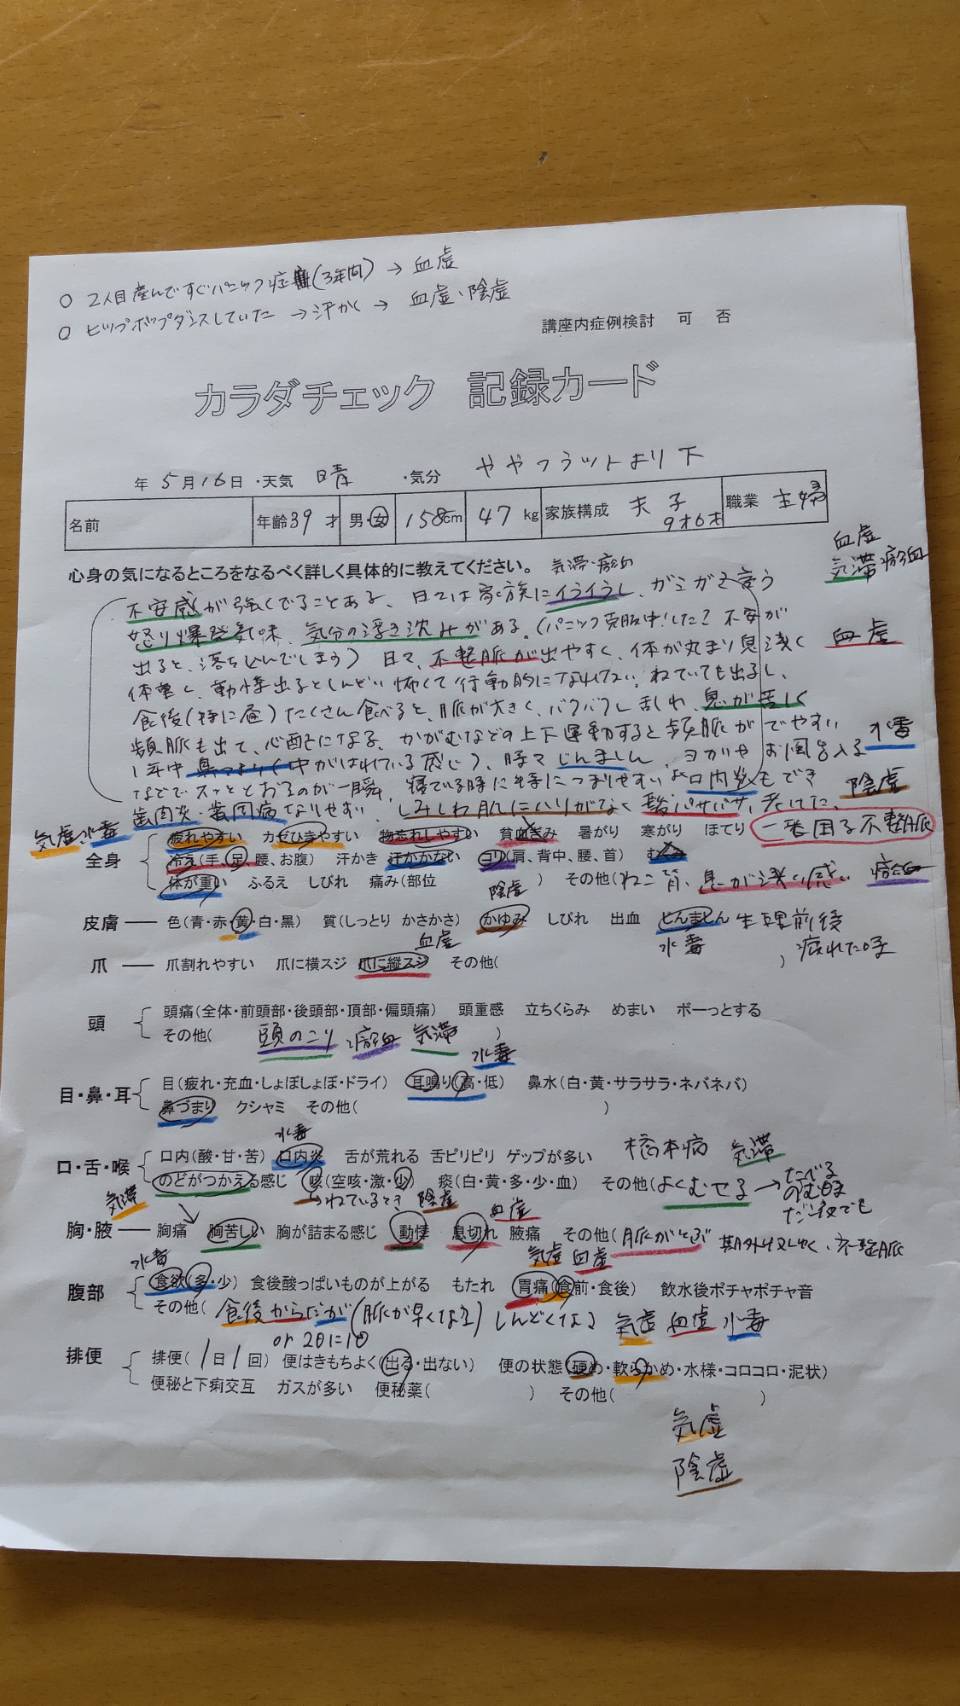 ○ 2人目産んですぐパニック症(3年間) → 血虚
○ ヒップホップダンスしていた → 汗かく → 血虚・陰虚
講座内症例検討 可 否
カラダチェック 記録カード
年 5月16日・天気 晴 ・気分 ややフラットより下
名前 年齢39才 男・女 158cm 47kg 家族構成 夫 子 9才6才 職業 主婦
心身の気になるところをなるべく詳しく具体的に教えてください。 気滞・瘀血
血虚
気滞 瘀血
不安感が強くでることある、日々は家族にイライラし、ガミガミ言う
怒り爆発気味、気分の浮き沈みがある。(パニック克服中!した? 不安が
出ると、落ちこんでしまう) 日々、不整脈が出やすく、体が丸まり息浅く
血虚
体重く、動悸出るとしんどい 怖くて行動的になれない。ねていても出るし、
食後(特に昼)たくさん食べると、脈が大きく、バクバクし乱れ、息が苦しく
頻脈も出て、心配になる、かがむなどの上下運動すると頻脈がでやすい
1年中鼻つまり(中がはれている感じ)、時々じんましん、ヨガやお風呂入る 水毒
などでスッととおるのが一瞬、寝ている時に特につまりやすい 口内炎もでき
陰虚
歯肉炎・歯周病なりやすい、しみしわ肌にハリがなく髪パサパサ、老けた、
気虚 水毒
一番困る不整脈
全身 疲れやすい カゼひきやすい 物忘れしやすい 貧血ぎみ 暑がり 寒がり ほてり
冷え(手、足、腰、お腹) 汗かき 汗かかない コリ(肩、背中、腰、首) むくみ
体が重い ふるえ しびれ 痛み(部位 ) その他(ねこ背、息が浅い感じ 瘀血
陰虚
皮膚 ― 色(青・赤・黄・白・黒) 質(しっとり かさかさ) かゆみ しびれ 出血 じんましん 生理前後
血虚 水毒 疲れた時
爪 ― 爪割れやすい 爪に横スジ 爪に縦スジ その他( )
頭 頭痛(全体・前頭部・後頭部・頂部・偏頭痛) 頭重感 立ちくらみ めまい ボーっとする
その他( 頭のこり 瘀血 気滞 )
水毒
目・鼻・耳 目(疲れ・充血・しょぼしょぼ・ドライ) 耳鳴り(高・低) 鼻水(白・黄・サラサラ・ネバネバ)
鼻づまり クシャミ その他( )
水毒
口・舌・喉 口内(酸・甘・苦) 口内炎 舌が荒れる 舌ピリピリ ゲップが多い 橋本病 気滞
のどがつかえる感じ 咳(空咳・激・少) 痰(白・黄・多・少・血) その他(よくむせる → たべる のむ時 だ液でも
気滞 ねているとき 陰虚 血虚
胸・腋 ― 胸痛 胸苦しい 胸が詰まる感じ 動悸 息切れ 腋痛 その他(脈がとぶ 期外収しゅく、不整脈
水毒 気虚 血虚
腹部 食欲(多・少) 食後酸っぱいものが上がる もたれ 胃痛(食前・食後) 飲水後ポチャポチャ音
その他( 食後からだが(脈が早くなる) しんどくなる 気虚 血虚 水毒
or 2日に1回
排便 排便( 1日1回) 便はきもちよく(出る・出ない) 便の状態(硬め・軟らかめ・水様・コロコロ・泥状)
便秘と下痢交互 ガスが多い 便秘薬( ) その他( )
気虚
陰虚